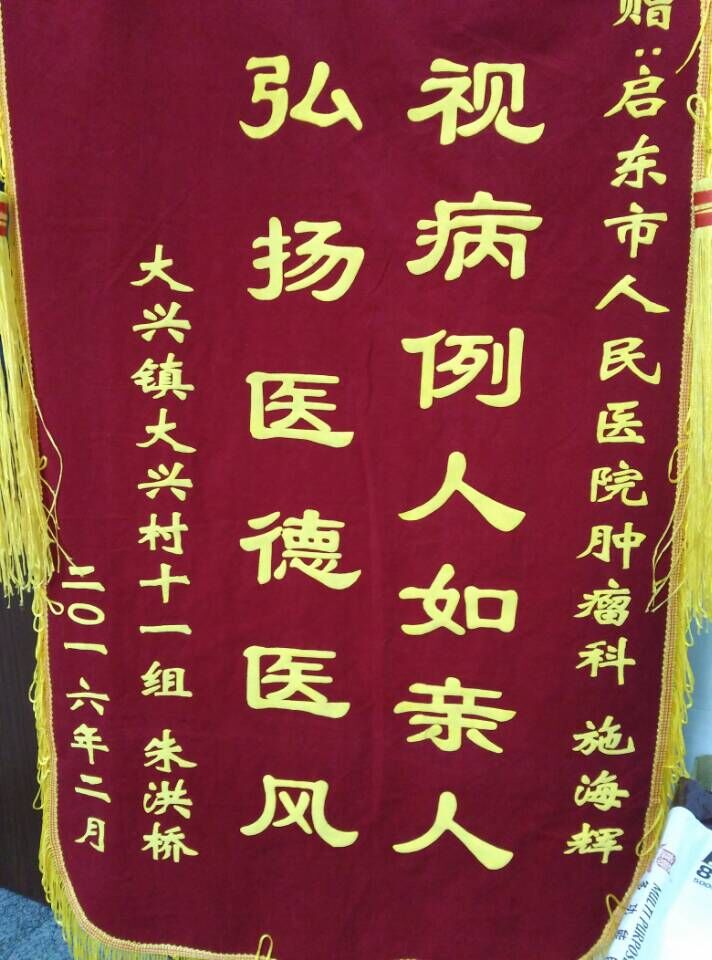 赠:启东市人民医院肿瘤科 施海辉
视病例人如亲人
弘扬医德医风
大兴镇大兴村十一组 朱洪桥
二〇一六年二月
MULTI PURPOS